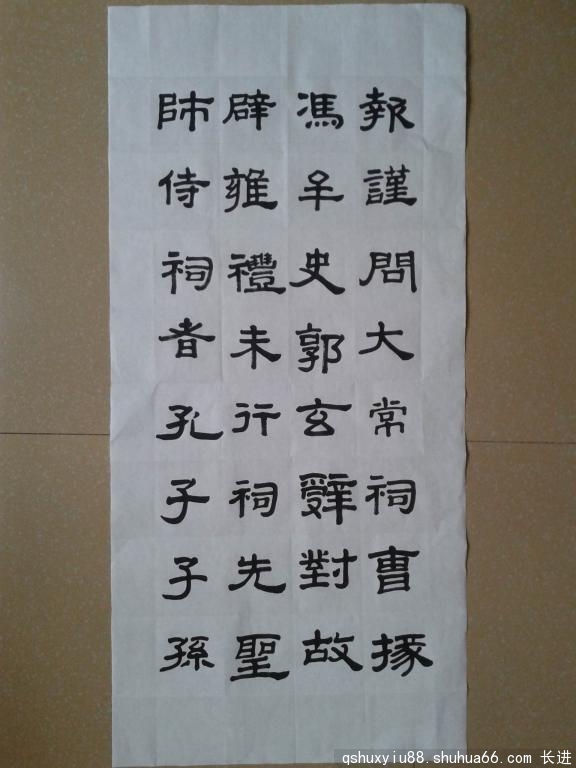 報謹問大常祠曹掾
馮牟史郭玄辭對故
辟雍禮未行祠先聖
師侍祠者孔子子孫
qshuxyiu88.shuhua66.com 长进